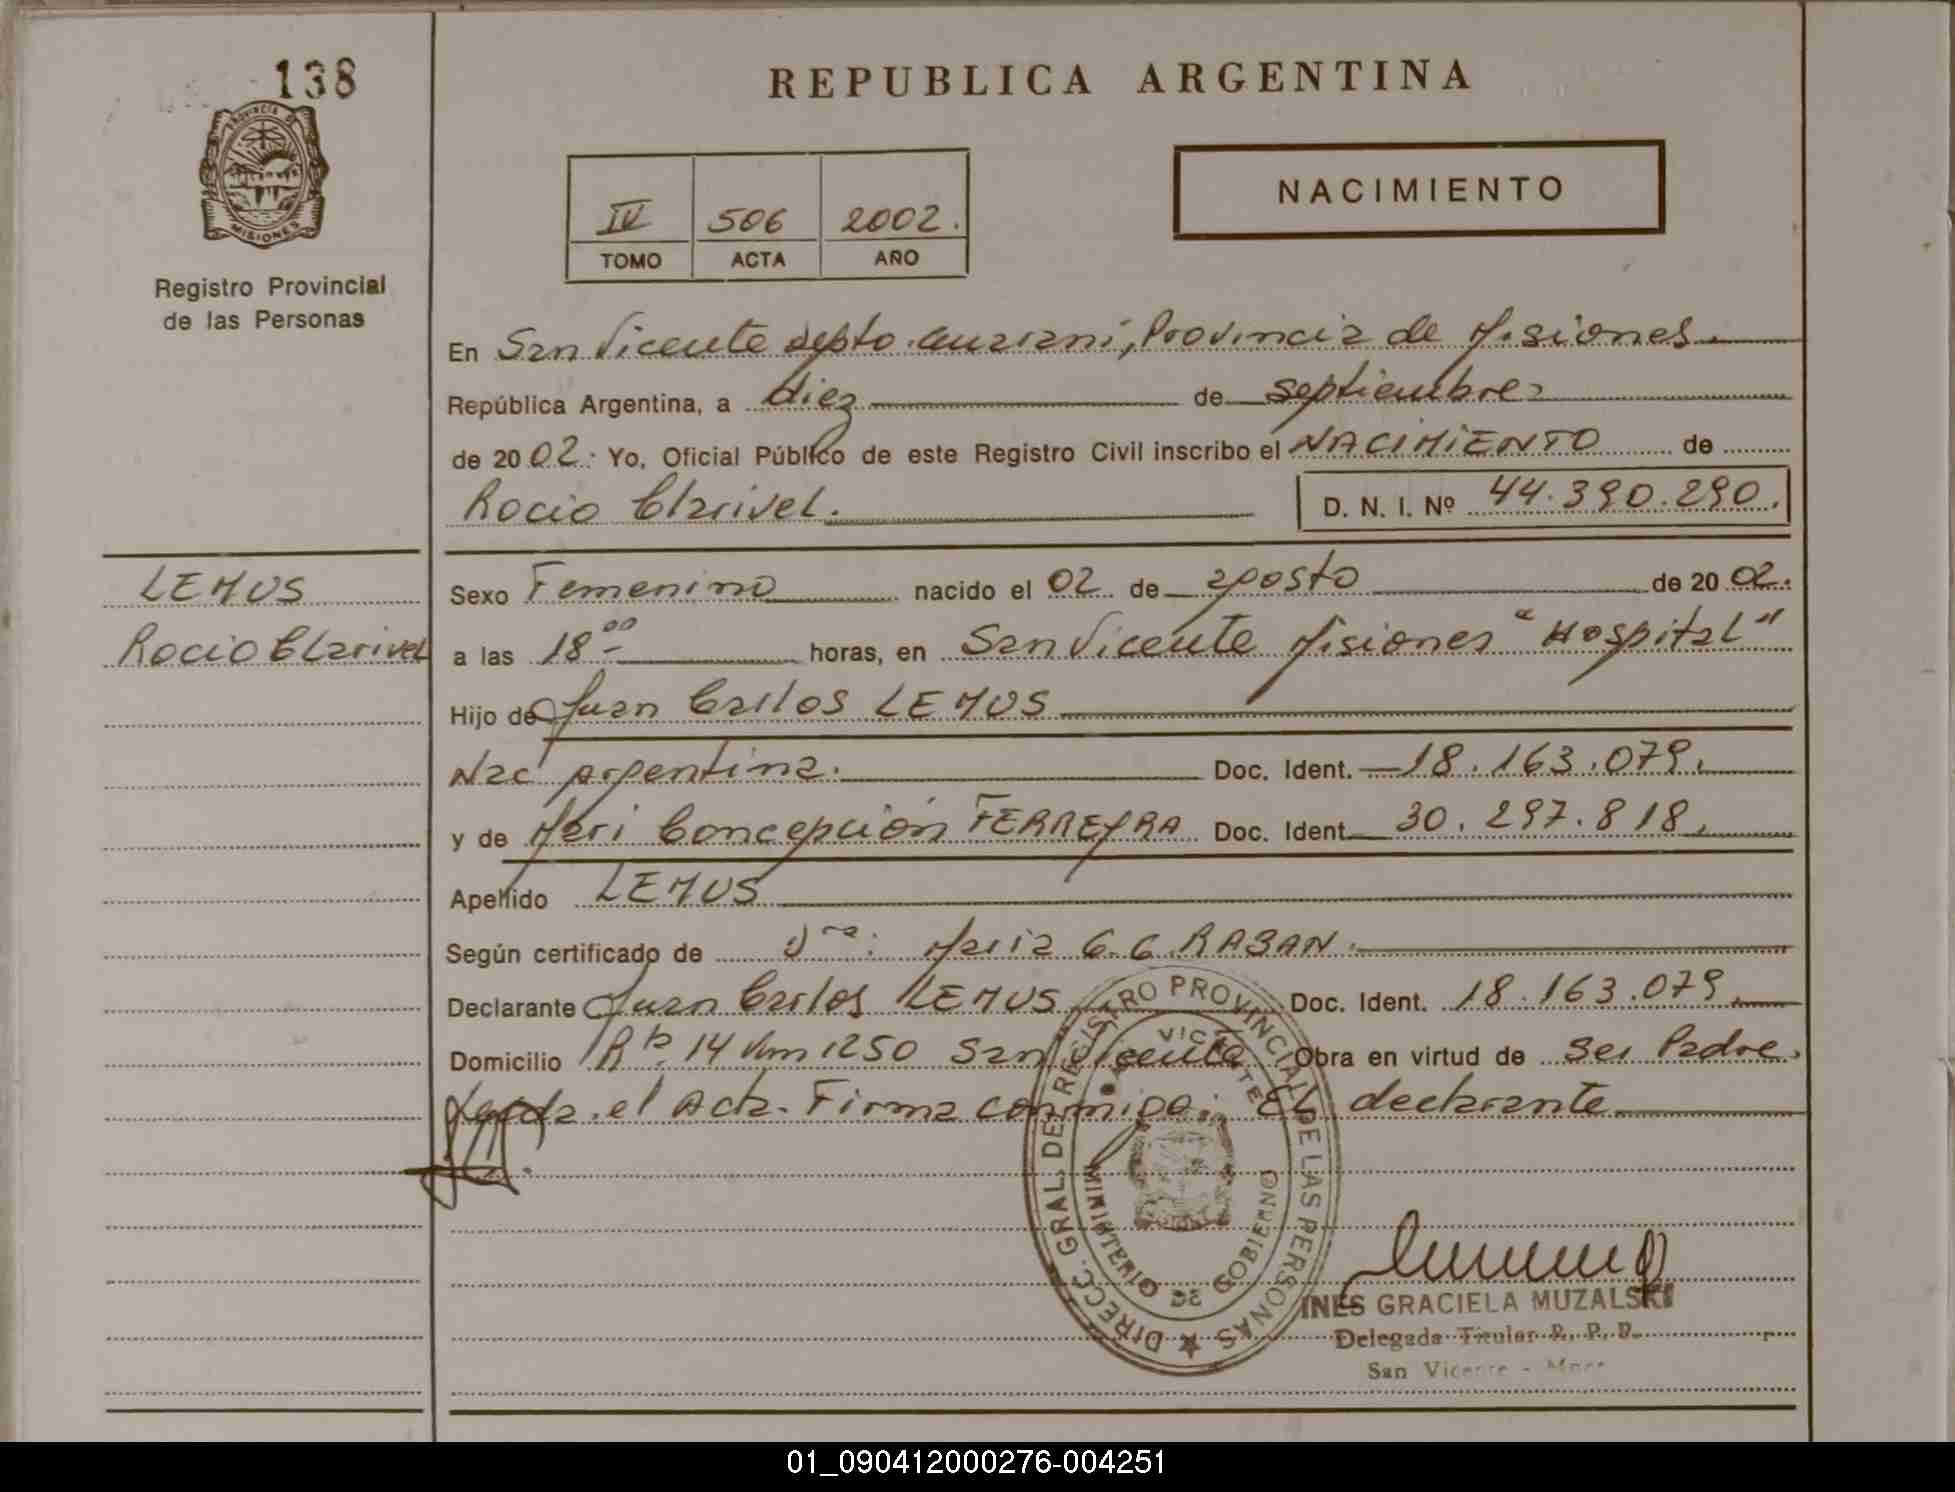 138
REPUBLICA ARGENTINA
PROVINCIA DE
MISIONES
Registro Provincial
de las Personas
IV 506 2002.
TOMO ACTA AÑO
NACIMIENTO
En San Vicente Depto. Guaraní, Provincia de Misiones.
República Argentina, a diez de septiembre
de 2002. Yo, Oficial Público de este Registro Civil inscribo el NACIMIENTO de
Rocio Clarivel. D. N. I. Nº 44.390.290.
LEMUS
Rocio Clarivel
Sexo Femenino nacido el 02 de agosto de 2002.
a las 18 00 horas, en San Vicente Misiones "Hospital"
Hijo de Juan Carlos LEMUS
Nac argentina. Doc. Ident. 18.163.079.
y de Mari Concepción FERREYRA Doc. Ident. 30.297.818.
Apellido LEMUS
Según certificado de Dra: Maria G. G. RABAN.
Declarante Juan Carlos LEMUS Doc. Ident. 18.163.079.
Domicilio Rta. 14 Km 1250 San Vicente Obra en virtud de ser Padre.
Leyda el Acta. Firma conmigo. El declarante
DIRECC. GRAL. DEL REGISTRO PROVINCIAL DE LAS PERSONAS
VICENTE
MINISTERIO DE GOBIERNO
INES GRACIELA MUZALSKI
Delegada Titular R. P. P.
San Vicente - Mnes
01_090412000276-004251